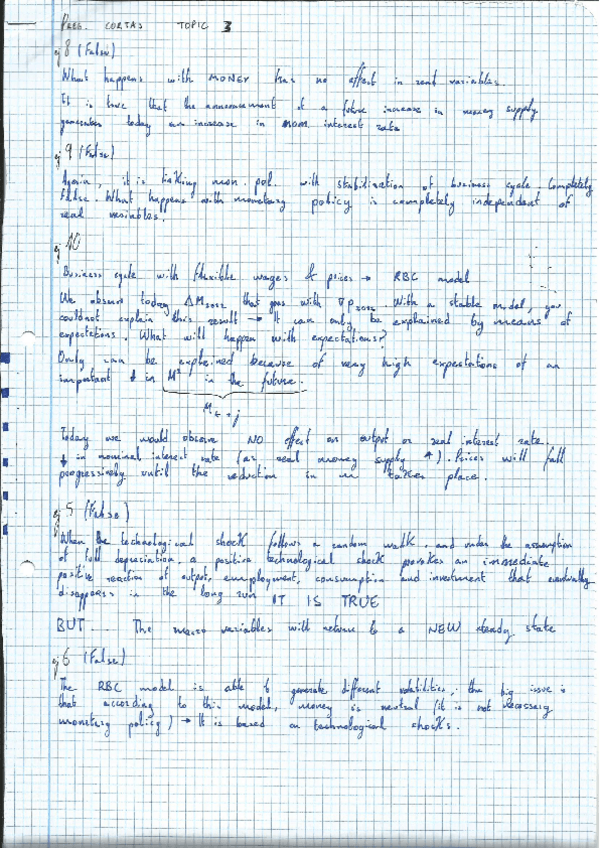 PREG. CORTAS TOPIC 3
ej 8 (False)
What happens with MONEY has no effect in real variables.
It is true that the announcement of a future increase in money supply
generates today an increase in nom. interest rate
ej 9 (False)
Again, it is linking mon. pol. with stabilization of business cycle, completely
FALSE. What happens with monetary policy is completely independent of
real variables.
ej 10
Business cycle with flexible wages & prices → RBC model
We observe today ΔM2012 that goes with ∇p2012. With a stable model, you
couldnot explain this result → It can only be explained by means of
expectations. What will happen with expectations?
Only can be explained because of very high expectations of an
important ↓ in Ms in the future.
Mt+j
Today we would observe NO effect on output or real interest rate.
↓ in nominal interest rate (as real money supply ↑). Prices will fall
progressively until the reduction in m takes place.
ej 5 (False)
When the technological shock follows a random walk, and under the assumption
of full depreciation, a positive technological shock provokes an immediate
positive reaction of output, employment, consumption and investment that eventually
disappears in the long run IT IS TRUE
BUT... The macro variables will return to a NEW steady state
ej 6 (False)
The RBC model is able to generate different volatilities; the big issue is
that according to this model, money is neutral (it is not necessary
monetary policy) → It is based on technological shocks.